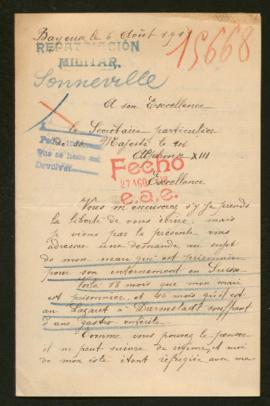 Bayeux le 6 Août 191
REPATRIACIÓN
MILITAR.
15668
Sonneville
A son Excellence
le Secrétaire particulier
de sa Majesté le roi
Alphonse XIII
Fecho
27 AGO
e.a.e.
que se hace en
Devolver
Excellence
Vous m'excuserez si je prends
la liberté de vous écrire, mais
je viens par la présente vous
adresser une demande au sujet
de mon mari qui est prisonnier
pour son internement en Suisse
Voilà 18 mois que mon mari
est prisonnier, et mois qu'il est
au Lazaret à Darmstadt souffrant
d'une gastro entérite.
Comme vous pouvez le penser
il ne peut suivre de régime, et moi
de mon côté étant réfugiée avec ma